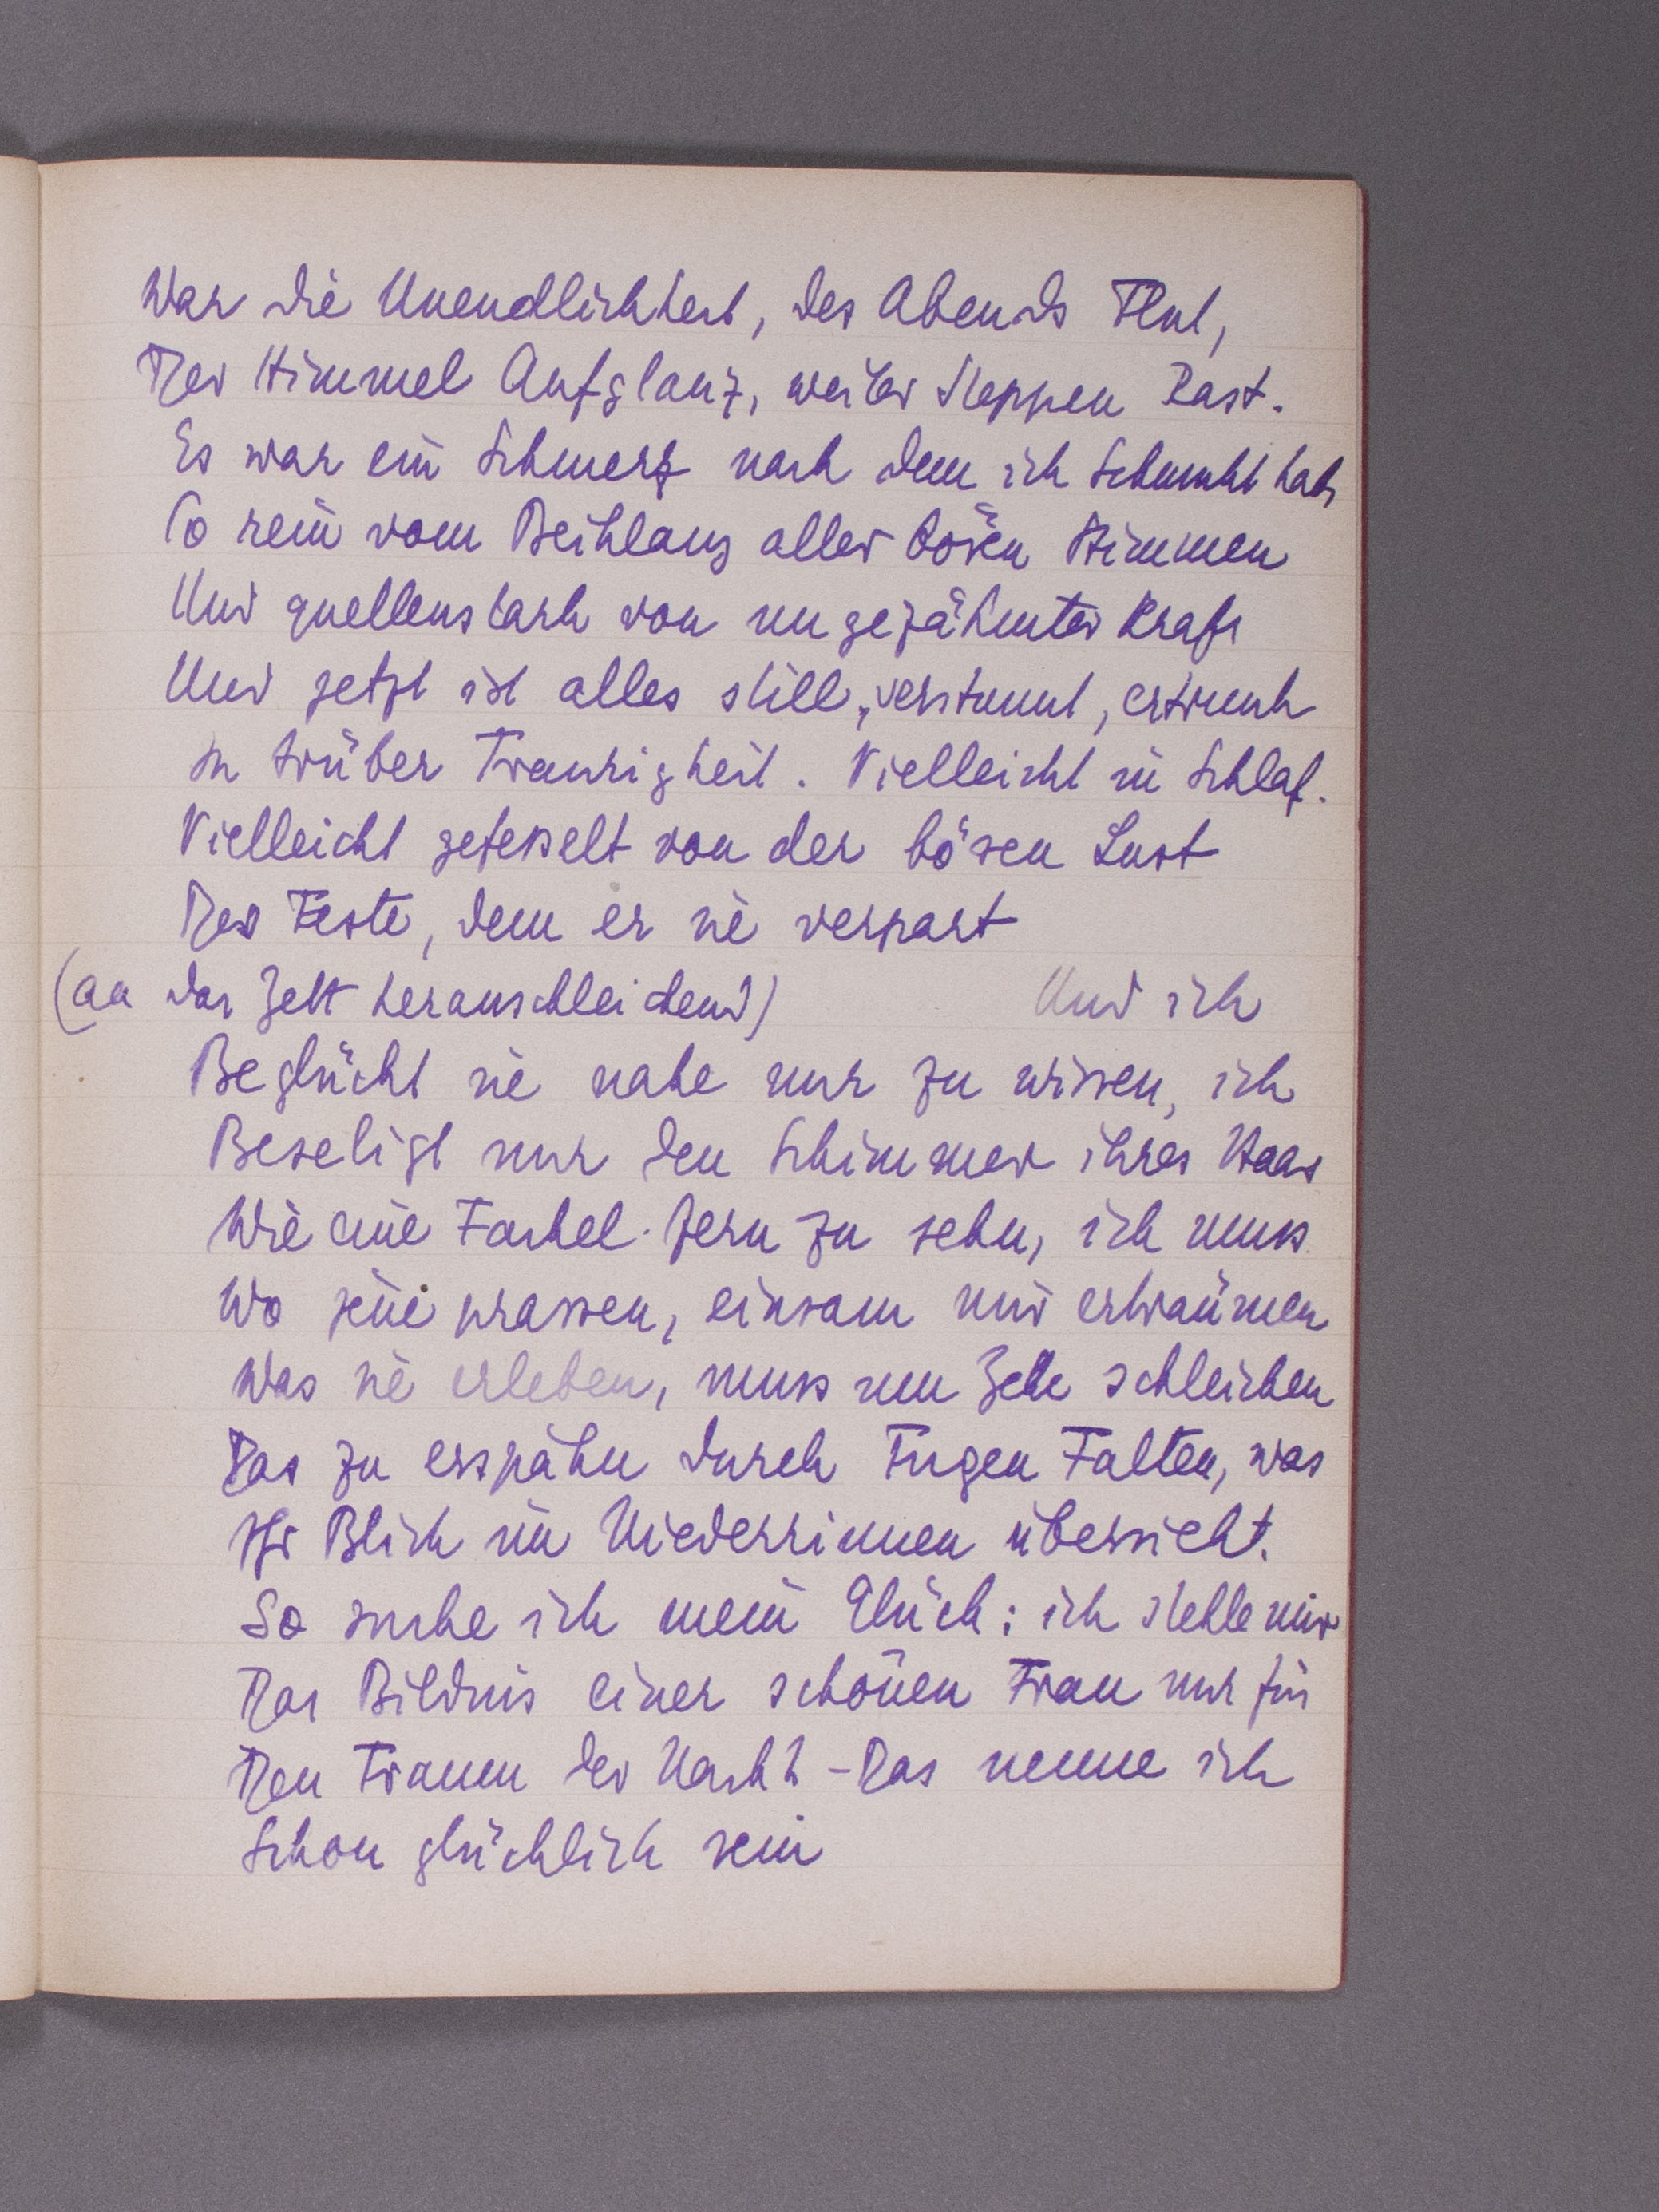 War die Unendlichkeit, des Abends Flut,
Der Himmel Aufglanz, weiter Steppen Rast.
Es war ein Schmerz nach dem ich Sehnsucht hab
So rein vom Beiklang aller bösen Stimmen
Und quellenstark von ungezähmter Kraft
Und jetzt ist alles still, verstummt, ertrunk
In trüber Traurigkeit. Vielleicht in Schlaf.
Vielleicht gefesselt von der bösen Lust
Des Feste, dem er sie verpart
(an das Zelt heranschleichend) Und ich
Beglückt sie nahe nur zu wissen, ich
Beseligt nur den Schimmer ihres Haars
Wie eine Fackel fern zu sehn, ich muss
Wo jene prassen, einsam mir erträumen
Was sie erleben, muss um Zelte schleichen
Das zu erspähn durch Fugen Falten, was
Ihr Blick im Niederrinnen übersieht.
So suche ich mein Glück: ich stehle mir
Das Bildnis einer schönen Frau nur für
Den Traum der Nacht - Das nenne ich
Schon glücklich sein